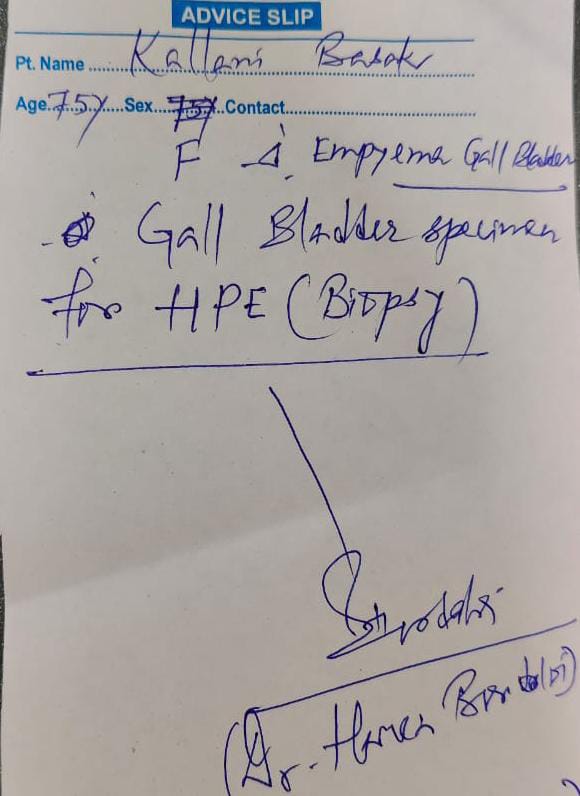 ADVICE SLIP
Pt. Name Kallani Basak
Age 75y Sex 75y Contact
F Δ. Empyema Gall Bladder
Gall Bladder specimen
for HPE (Biopsy)
(Dr. Haren Bordoloi)